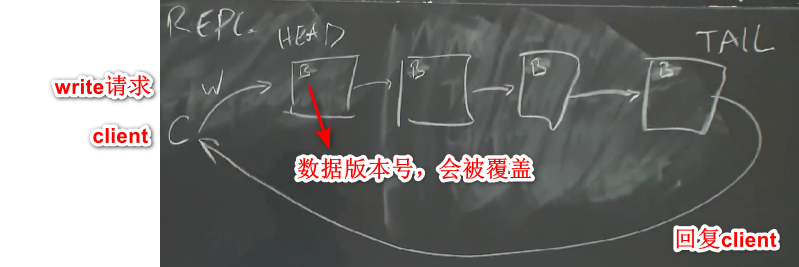 REPL.
HEAD
TAIL
write请求
W
B
B
B
B
client
C
数据版本号，会被覆盖
回复client